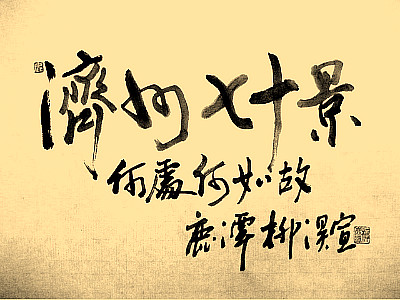 濟州七十景
何處何如故
鹿潭柳宣